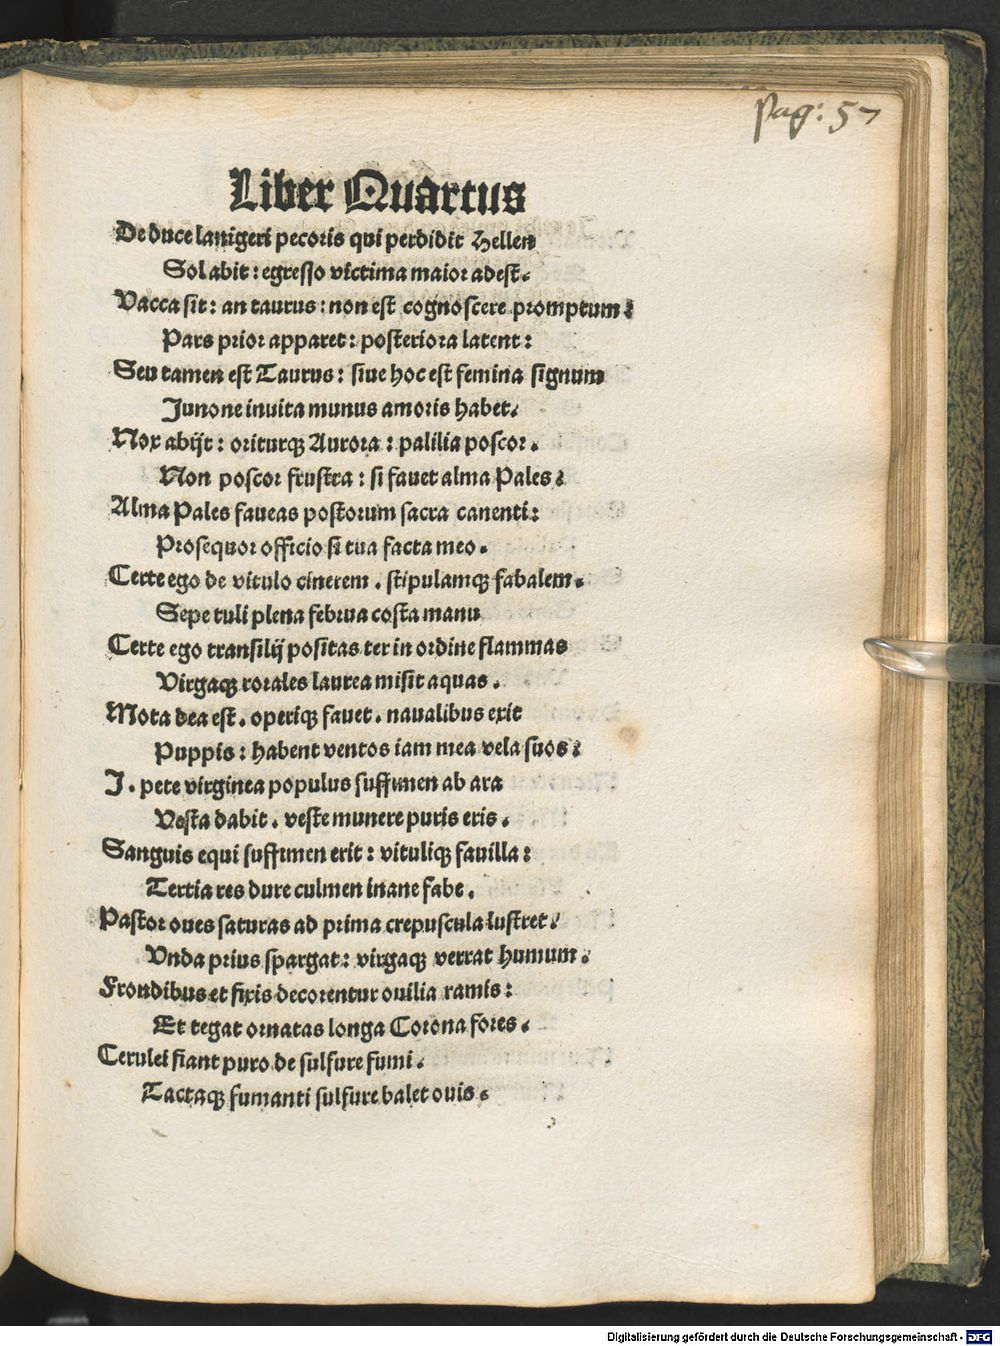 Pag: 57
Liber Quartus
De duce lanigeri pecoris qui perdidit Hellen
Sol abit: egresso victima maior adest.
Vacca sit: an taurus: non est cognoscere promptum:
Pars prior apparet: posteriora latent:
Seu tamen est Taurus: siue hoc est femina signum
Junone inuita munus amoris habet.
Nox abijt: oriturqꝫ Aurora: palilia poscor.
Non poscor frustra: si fauet alma Pales:
Alma Pales faueas postorum sacra canenti:
Prosequor officio si tua facta meo.
Certe ego de vitulo cinerem. stipulamqꝫ fabalem.
Sepe tuli plena februa costa manu
Certe ego transilij positas ter in ordine flammas
Virgaqꝫ rorales laurea misit aquas.
Mota dea est. operiqꝫ fauet. naualibus exit
Puppis: habent ventos iam mea vela suos:
J. pete virginea populus suffimen ab ara
Vesta dabit. veste munere puris eris.
Sanguis equi suffimen erit: vituliqꝫ fauilla:
Tertia res dure culmen inane fabe.
Pastor oues saturas ad prima crepuscula lustret:
Vnda prius spargat: virgaqꝫ verrat humum.
Frondibus et fixis decorentur ouilia ramis:
Et tegat ornatas longa Corona fores.
Cerulei fiant puro de sulfure fumi.
Tactaqꝫ fumanti sulfure balet ouis.
Digitalisierung gefördert durch die Deutsche Forschungsgemeinschaft - DFG